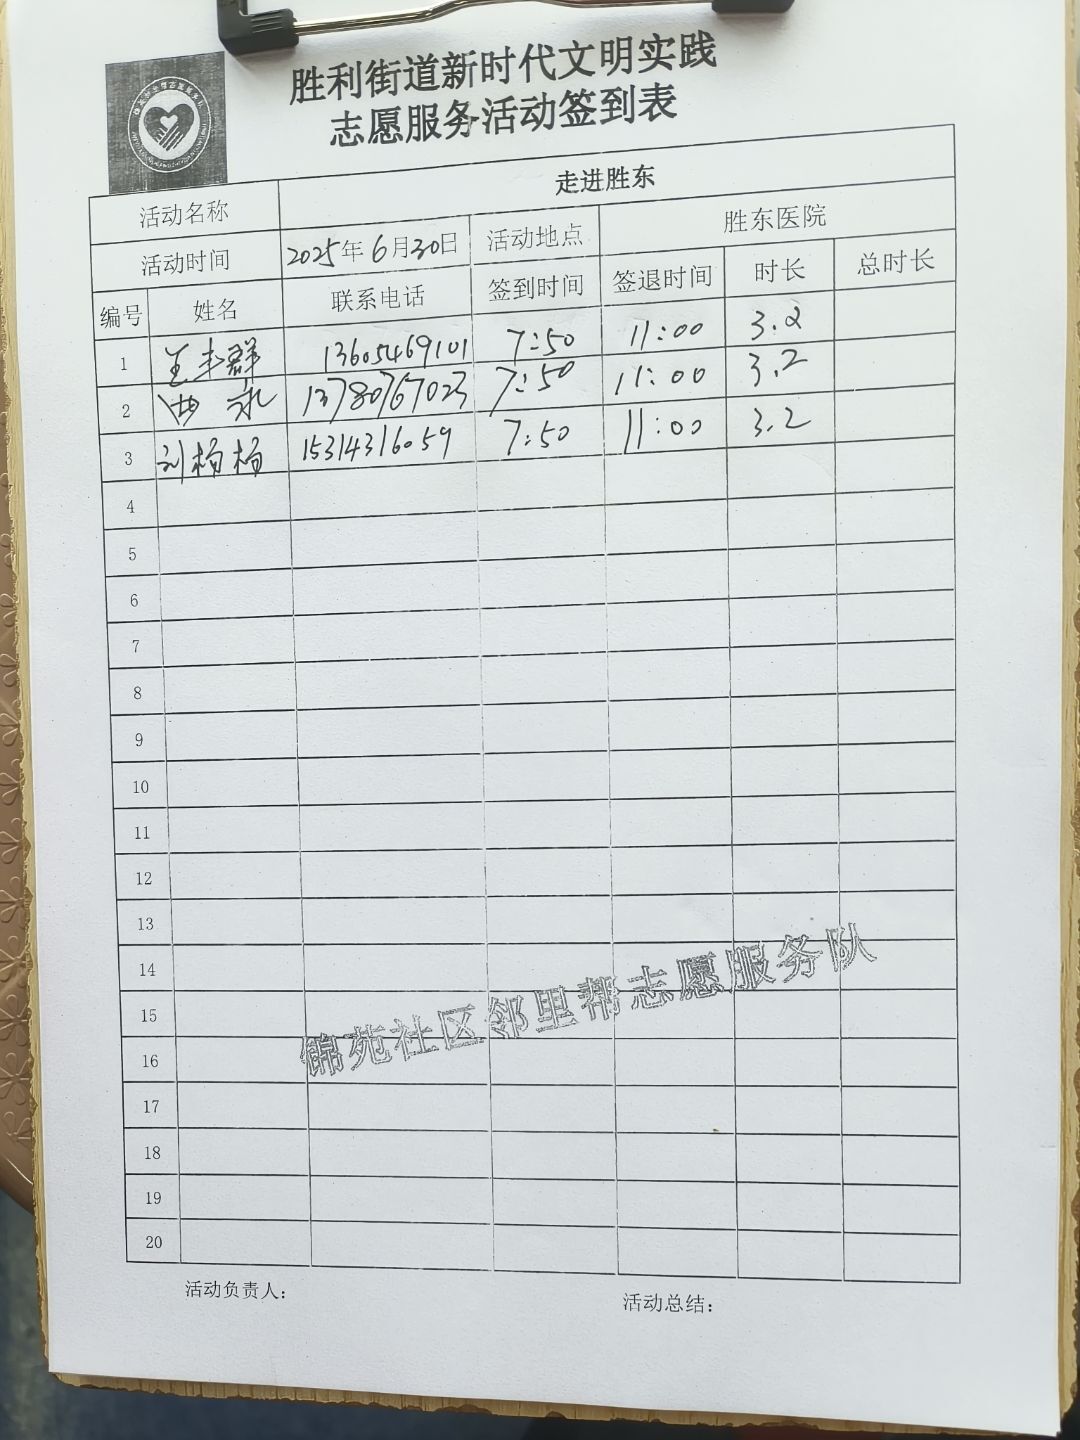 胜利街道新时代文明实践
志愿服务活动签到表
活动名称 走进胜东
活动时间 2025年6月30日 活动地点 胜东医院
编号 姓名 联系电话 签到时间 签退时间 时长 总时长
1 王丰群 13605469101 7:50 11:00 3.2
2 13780767023 7:50 11:00 3.2
3 刘杨杨 15314316059 7:50 11:00 3.2
4
5
6
7
8
9
10
11
12
13
14
15
16
17
18
19
20
锦苑社区邻里帮志愿服务队
活动负责人：
活动总结：